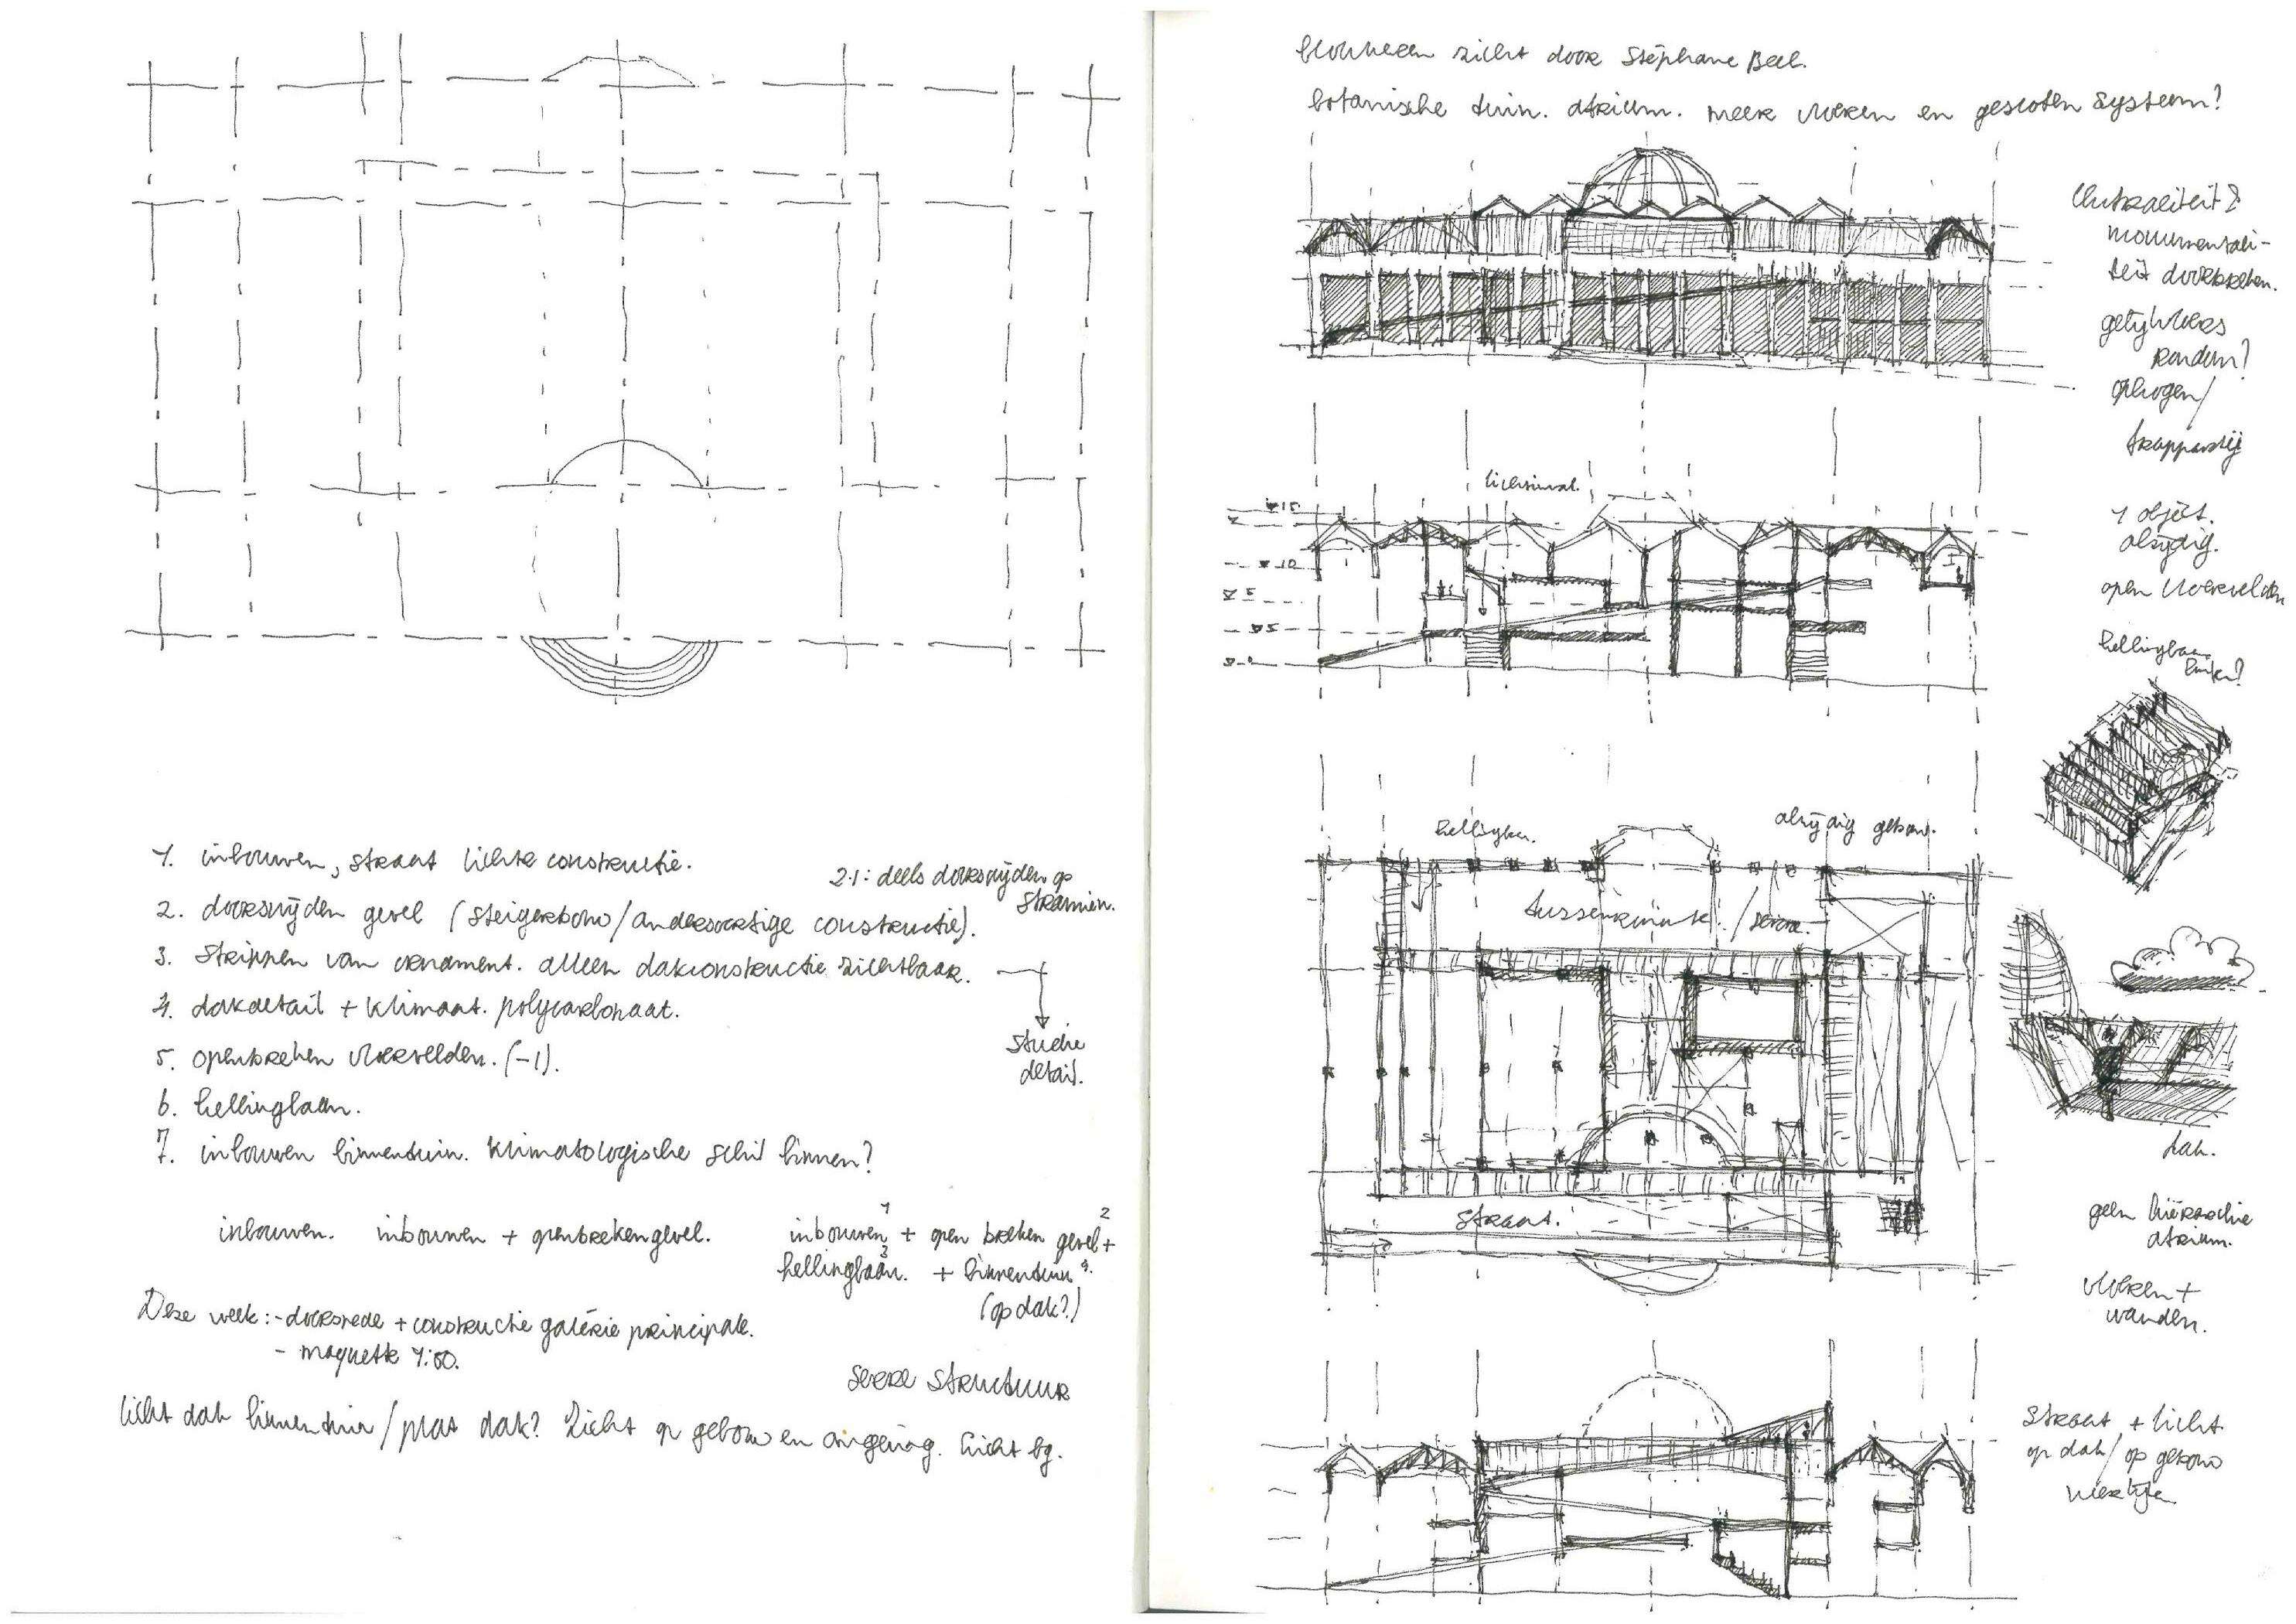 1. inbouwen, straat lichte constructie.
2.1: deels doorsnijden op
stramien.
2. doorsnijden gevel (steigerbouw/andersoortige constructie).
3. strippen van ornament. alleen dakconstructie zichtbaar.
studie
detail.
4. dakdetail + klimaat. polycarbonaat.
5. openbreken vloervelden. (-1).
6. hellingbaan.
7. inbouwen binnentuin. klimatologische schil binnen?
inbouwen. inbouwen + openbreken gevel.
inbouwen 1 + open breken gevel 2 +
hellingbaan 3. + binnentuin 4.
(op dak?)
Deze week: - doorsnede + constructie galérie principale.
- maquette 1:50.
serre structuur
licht dak binnentuin / plat dak? Zicht op gebouw en omgeving. licht bg.
zicht door Stéphane Beel.
botanische tuin. atrium. meer vloeren en gesloten systeem?
monumentali-
teit doorbreken.
gelijkvloers
rondom?
ophogen/
trappartij
1 object.
alzijdig.
open vloervelden
hellingbaan
links?
lichtinval.
15
10
5
hellingbaan.
alzijdig gebouw.
tussenruimte / serre.
straat.
dak.
geen hiërarchie
atrium.
vloeren +
wanden.
straat + licht
op dak / op gebouw